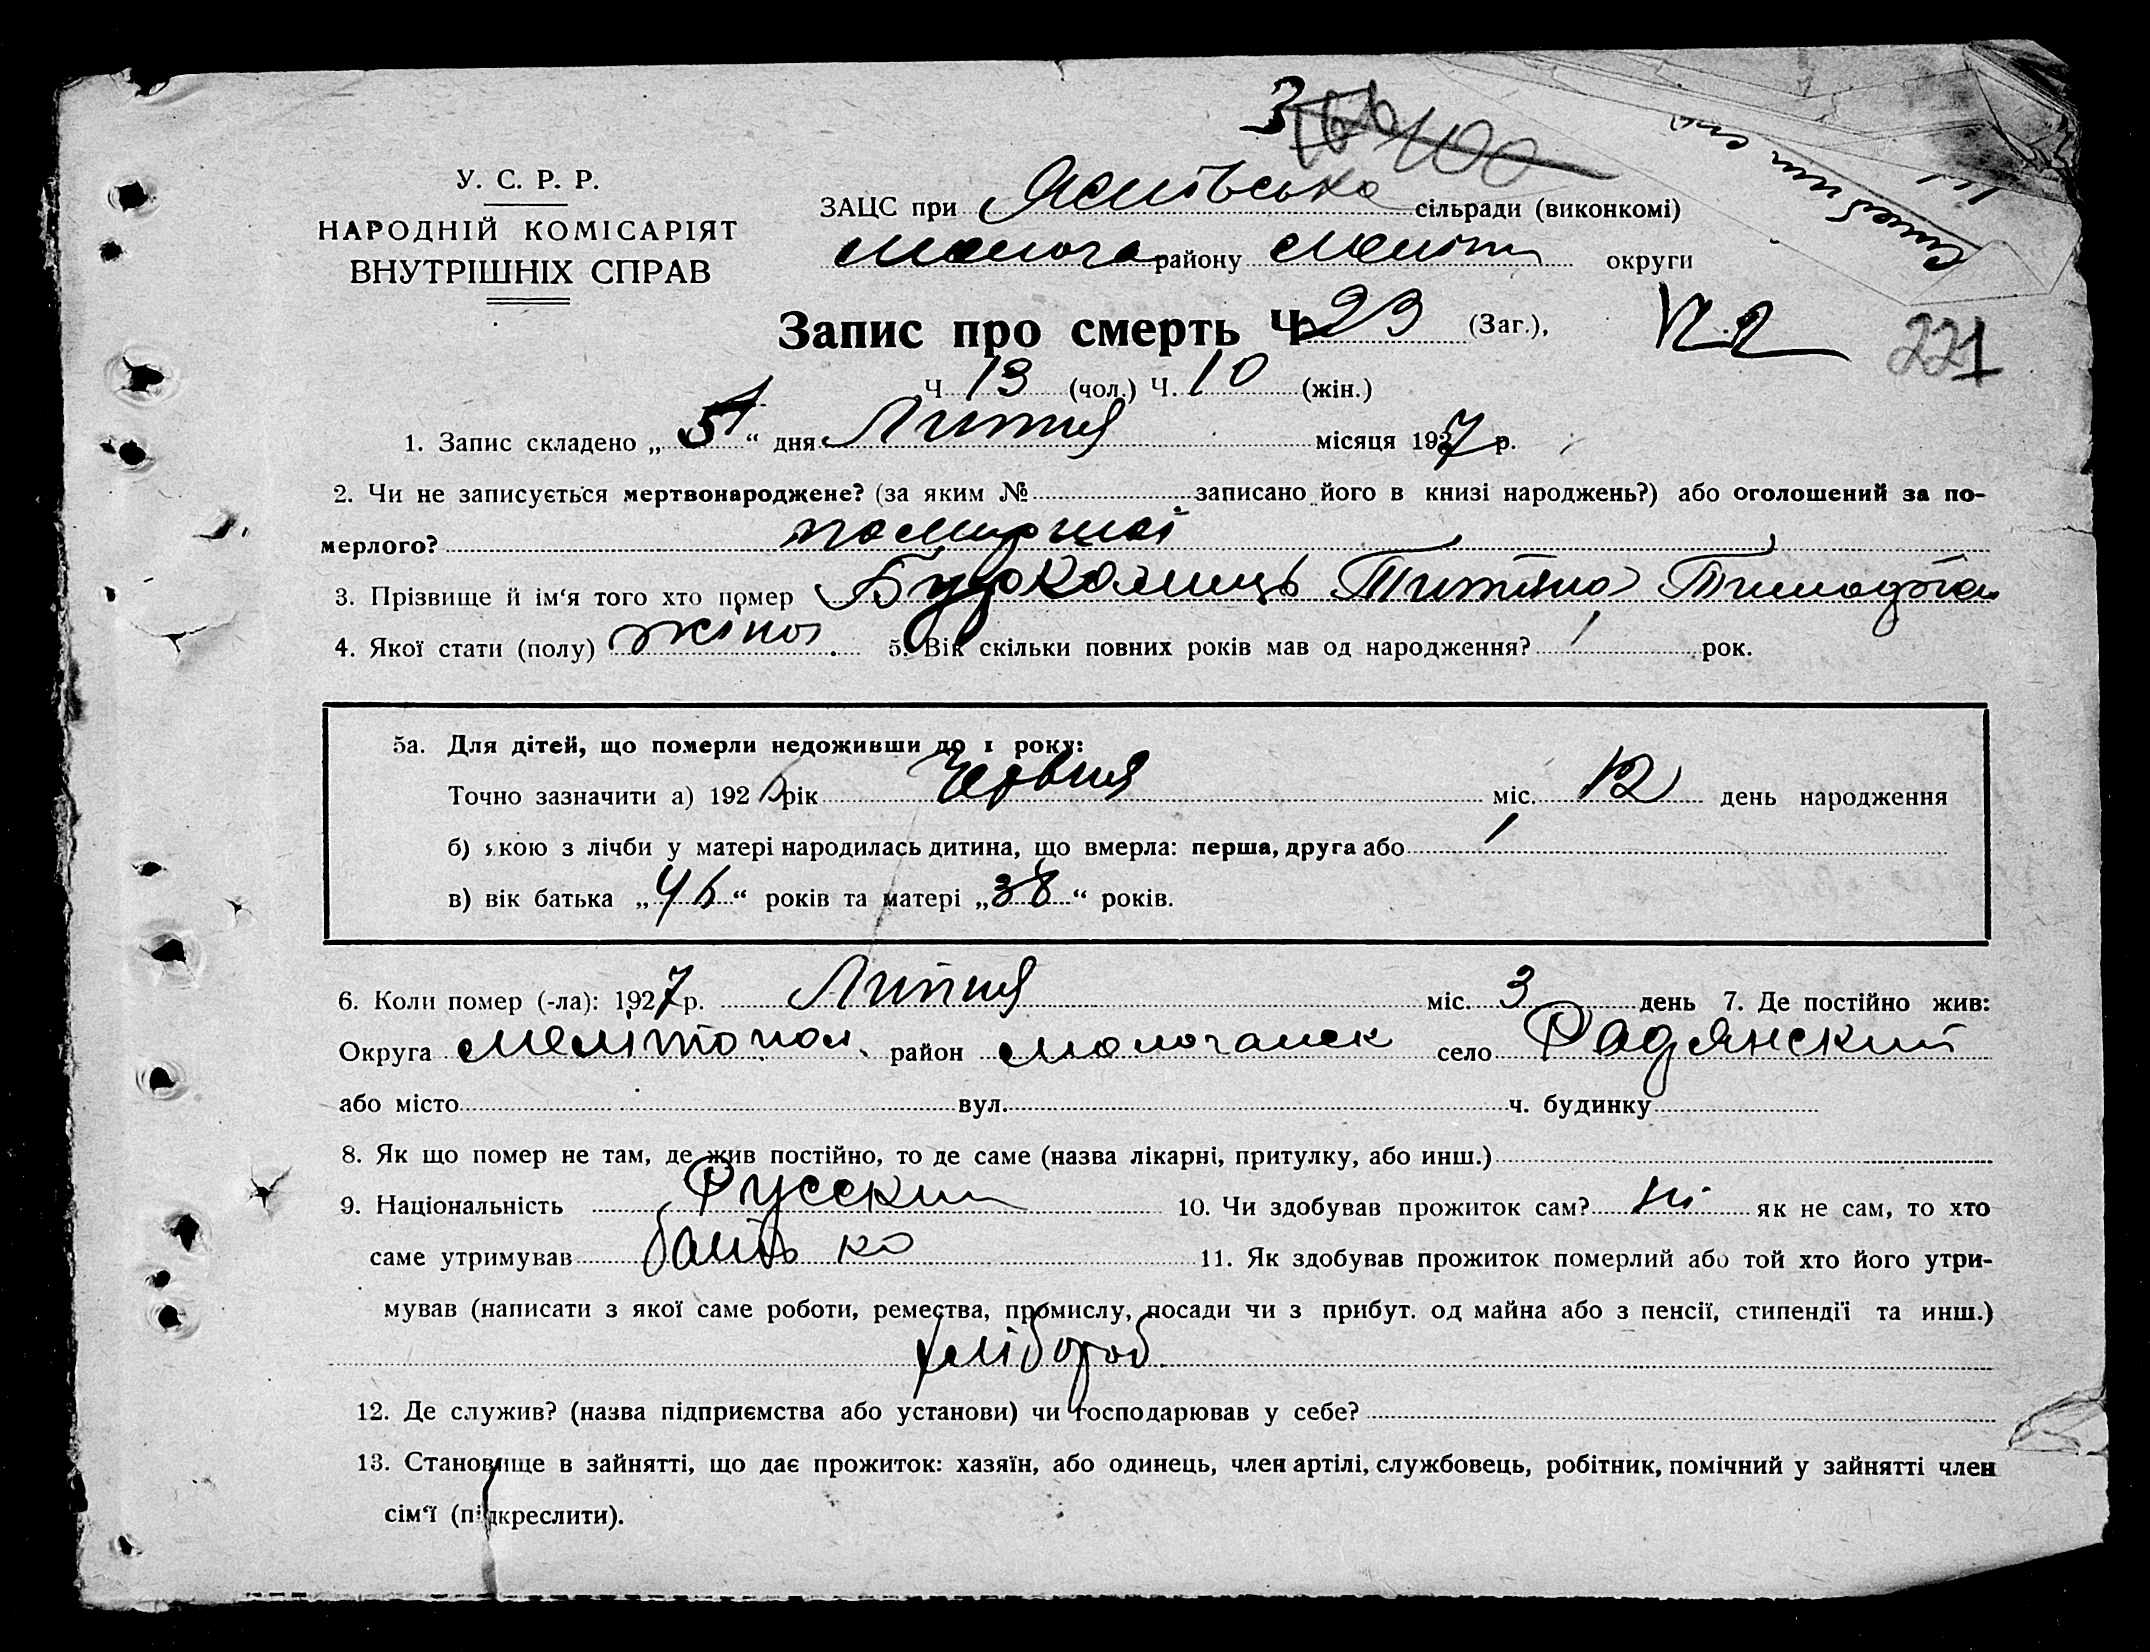 У. С. Р. Р.
НАРОДНІЙ КОМІСАРІЯТ
ВНУТРІШНІХ СПРАВ
ЗАЦС при сільради (виконкомі)
Молоча району Меліт округи
Запис про смерть Ч 23 (Заг.),
221
Ч 13 (чол.) Ч. 10 (жін.)
1. Запис складено „ 5 “ дня Липня місяця 1927 р.
2. Чи не записується мертвонароджене? (за яким № записано його в книзі народжень?) або оголошений за по-
мерлого? помирша
3. Прізвище й ім‘я того хто помер Бурколиць Титяна
4. Якої стати (полу) жіноі 5. Вік скільки повних років мав од народження? 1 рок.
5а. Для дітей, що померли недоживши до 1 року:
Точно зазначити а) 192 рік Червня міс. 12 день народження
б) якою з лічби у матері народилась дитина, що вмерла: перша, друга або 1
в) вік батька „ “ років та матері „ 38 “ років.
6. Коли помер (-ла): 1927 р. Липня міс. 3 день 7. Де постійно жив:
Округа Мелітопол. район Молочанск село Радянский
або місто вул. ч. будинку
8. Як що помер не там, де жив постійно, то де саме (назва лікарні, притулку, або инш.)
9. Національність Русский 10. Чи здобував прожиток сам? ні як не сам, то хто
саме утримував батько 11. Як здобував прожиток померлий або той хто його утри-
мував (написати з якої саме роботи, ремества, промислу, посади чи з прибут. од майна або з пенсії, стипендії та инш.)
хлібороб
12. Де служив? (назва підприємства або установи) чи господарював у себе?
13. Становище в зайнятті, що дає прожиток: хазяїн, або одинець, член артілі, службовець, робітник, помічний у зайнятті член
сім‘ї (підкреслити).